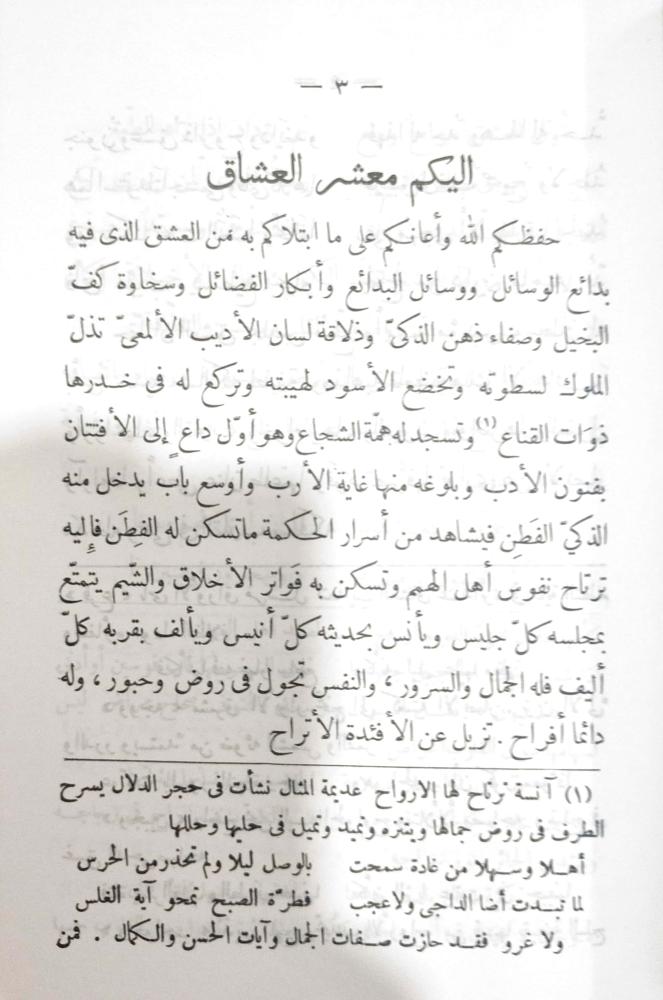 — ٣ —
اليكم معشر العشاق
حفظكم الله وأعانكم على ما ابتلاكم به من العشق الذى فيه
بدائع الوسائل ووسائل البدائع وأبكار الفضائل وسخاوة كفّ
البخيل وصفاء ذهن الذكىّ وذلاقة لسان الأديب الألمعىّ تذلّ
الملوك لسطوته وتخضع الأسود لهيبته وتركع له فى خدرها
ذوَات القناع (١) وتسجد له همّة الشجاع وهو أوّل داعٍ إلى الأفتتان
بفنون الأدب وبلوغه منها غاية الأرب وأوسع باب يدخل منه
الذكىّ الفَطِن فيشاهد من أسرار الحكمة ماتسكن له الفِطَن فإليه
ترتاح نفوس أهل الهمم وتسكن به فَواتر الأخلاق والشّيم يتمتّع
بمجلسه كلّ جليس ويأنس بحديثه كلّ أنيس ويألف بقربه كلّ
أليف فله الجمال والسرور ، والنفس تجول فى روض وحبور ، وله
دائما أفراح . تزيل عن الأفئدة الأتراح
(١) آنسة ترتاح لها الارواح عديمة المثال نشأت فى حجر الدلال يسرح
الطرف فى روض جمالها ويتنزه وتميد وتميل فى حليها وحللها
أهلا وسهلا من غادة سمحت بالوصل ليلا ولم تحذر من الحرس
لما تبدت أضا الداجى ولاعجب فطرّة الصبح تمحو آية الغلس
ولا غرو فقد حازت صفات الجمال وآيات الحسن والكمال . فمن